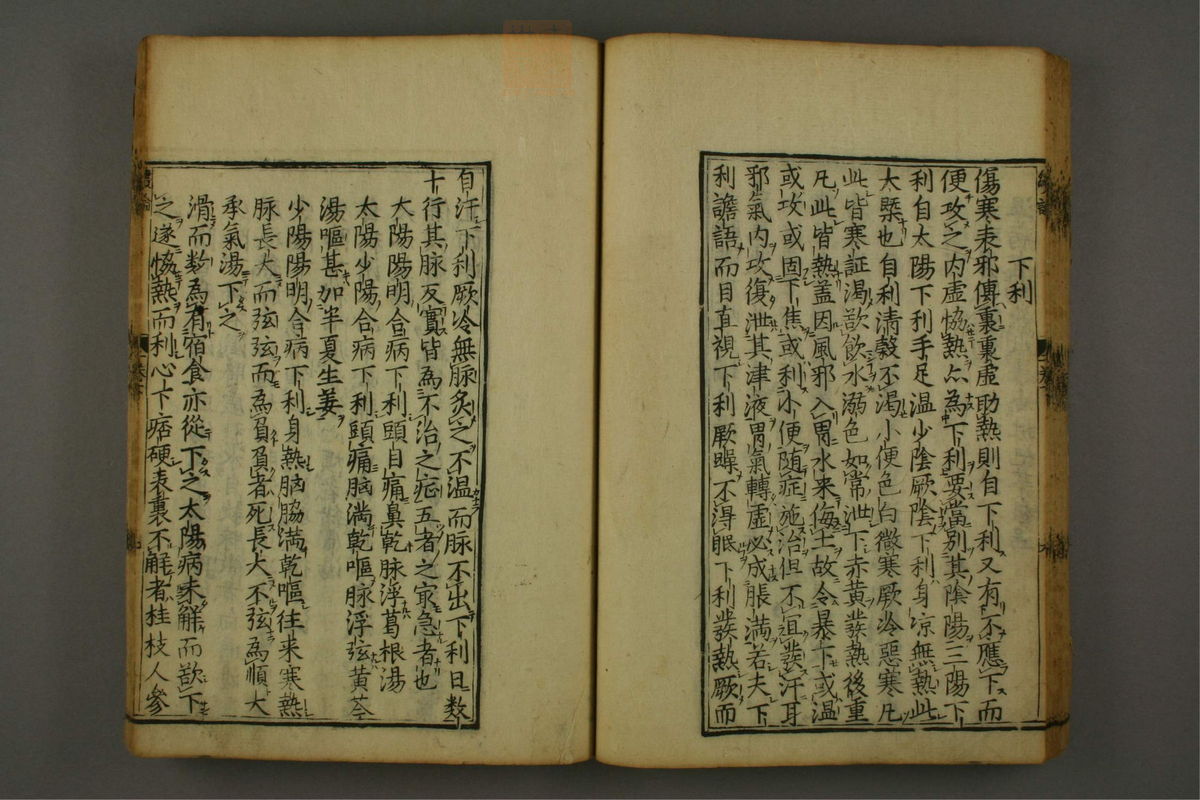 下利
傷寒表邪傳裏裏虛助熱則自下利又有不應下而
便攻之内虛恊熱亦為下利要當別其陰陽三陽下
利自太陽下利手足温少陰厥陰下利身凉無熱此
太槩也自利清穀不渴小便色白微寒厥冷惡寒凡
此皆寒証渴欲飲水溺色如常泄下赤黄發熱後重
凡此皆熱盖因風邪入胃水来侮土故令暴下或温
或攻或固下焦或利小便随症施治但不宜發汗耳
邪氣内攻復泄其津液胃氣轉虛必成脹満若夫下
利譫語而目直視下利厥躁不得眠下利發熱厥而
自汗下利厥冷無脉灸之不温而脉不出下利日数
十行其脉反實皆為不治之症五者之㝡急者也
大陽陽明合病下利頭目痛鼻乾脉浮葛根湯
太陽少陽合病下利頭痛脇満乾嘔脉浮弦黄芩
湯嘔甚加半夏生姜
少陽陽明合病下利身熱脇脇満乾嘔往来寒熱
脉長大而弦弦而為負負者死長大不弦為順大
承氣湯下之
滑而数為有宿食亦從下之太陽病未解而欲下
之遂恊熱而利心下痞硬表裏不解者桂枝人參